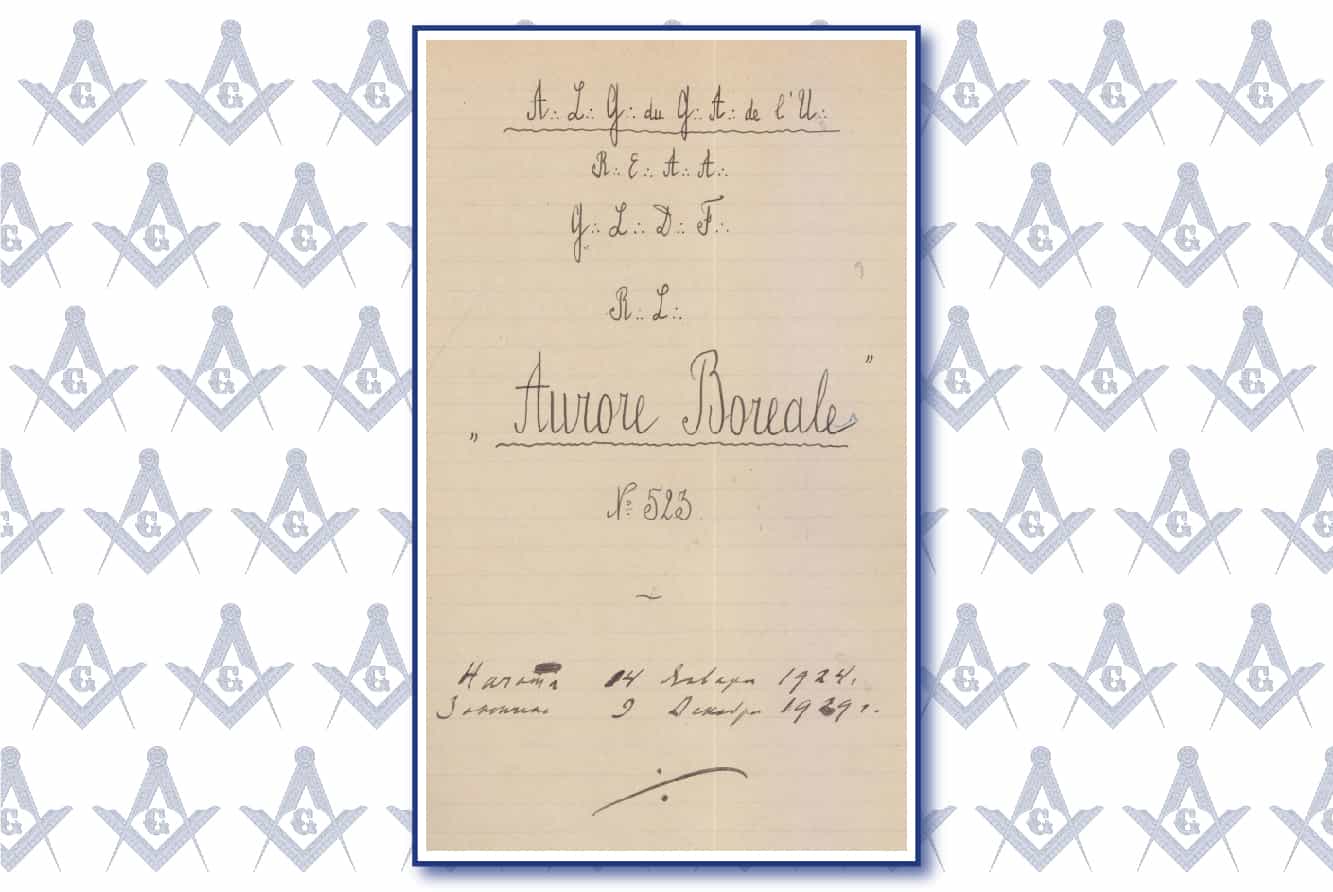 A∴ L∴ G∴ du G∴ A∴ de l'U∴
R∴ E∴ A∴ A∴
G∴ L∴ D∴ F∴
R∴ L∴
„Aurore Boreale”
№ 523
Начата 14 Января 1924.
Закончена 9 Декабря 1929 г.